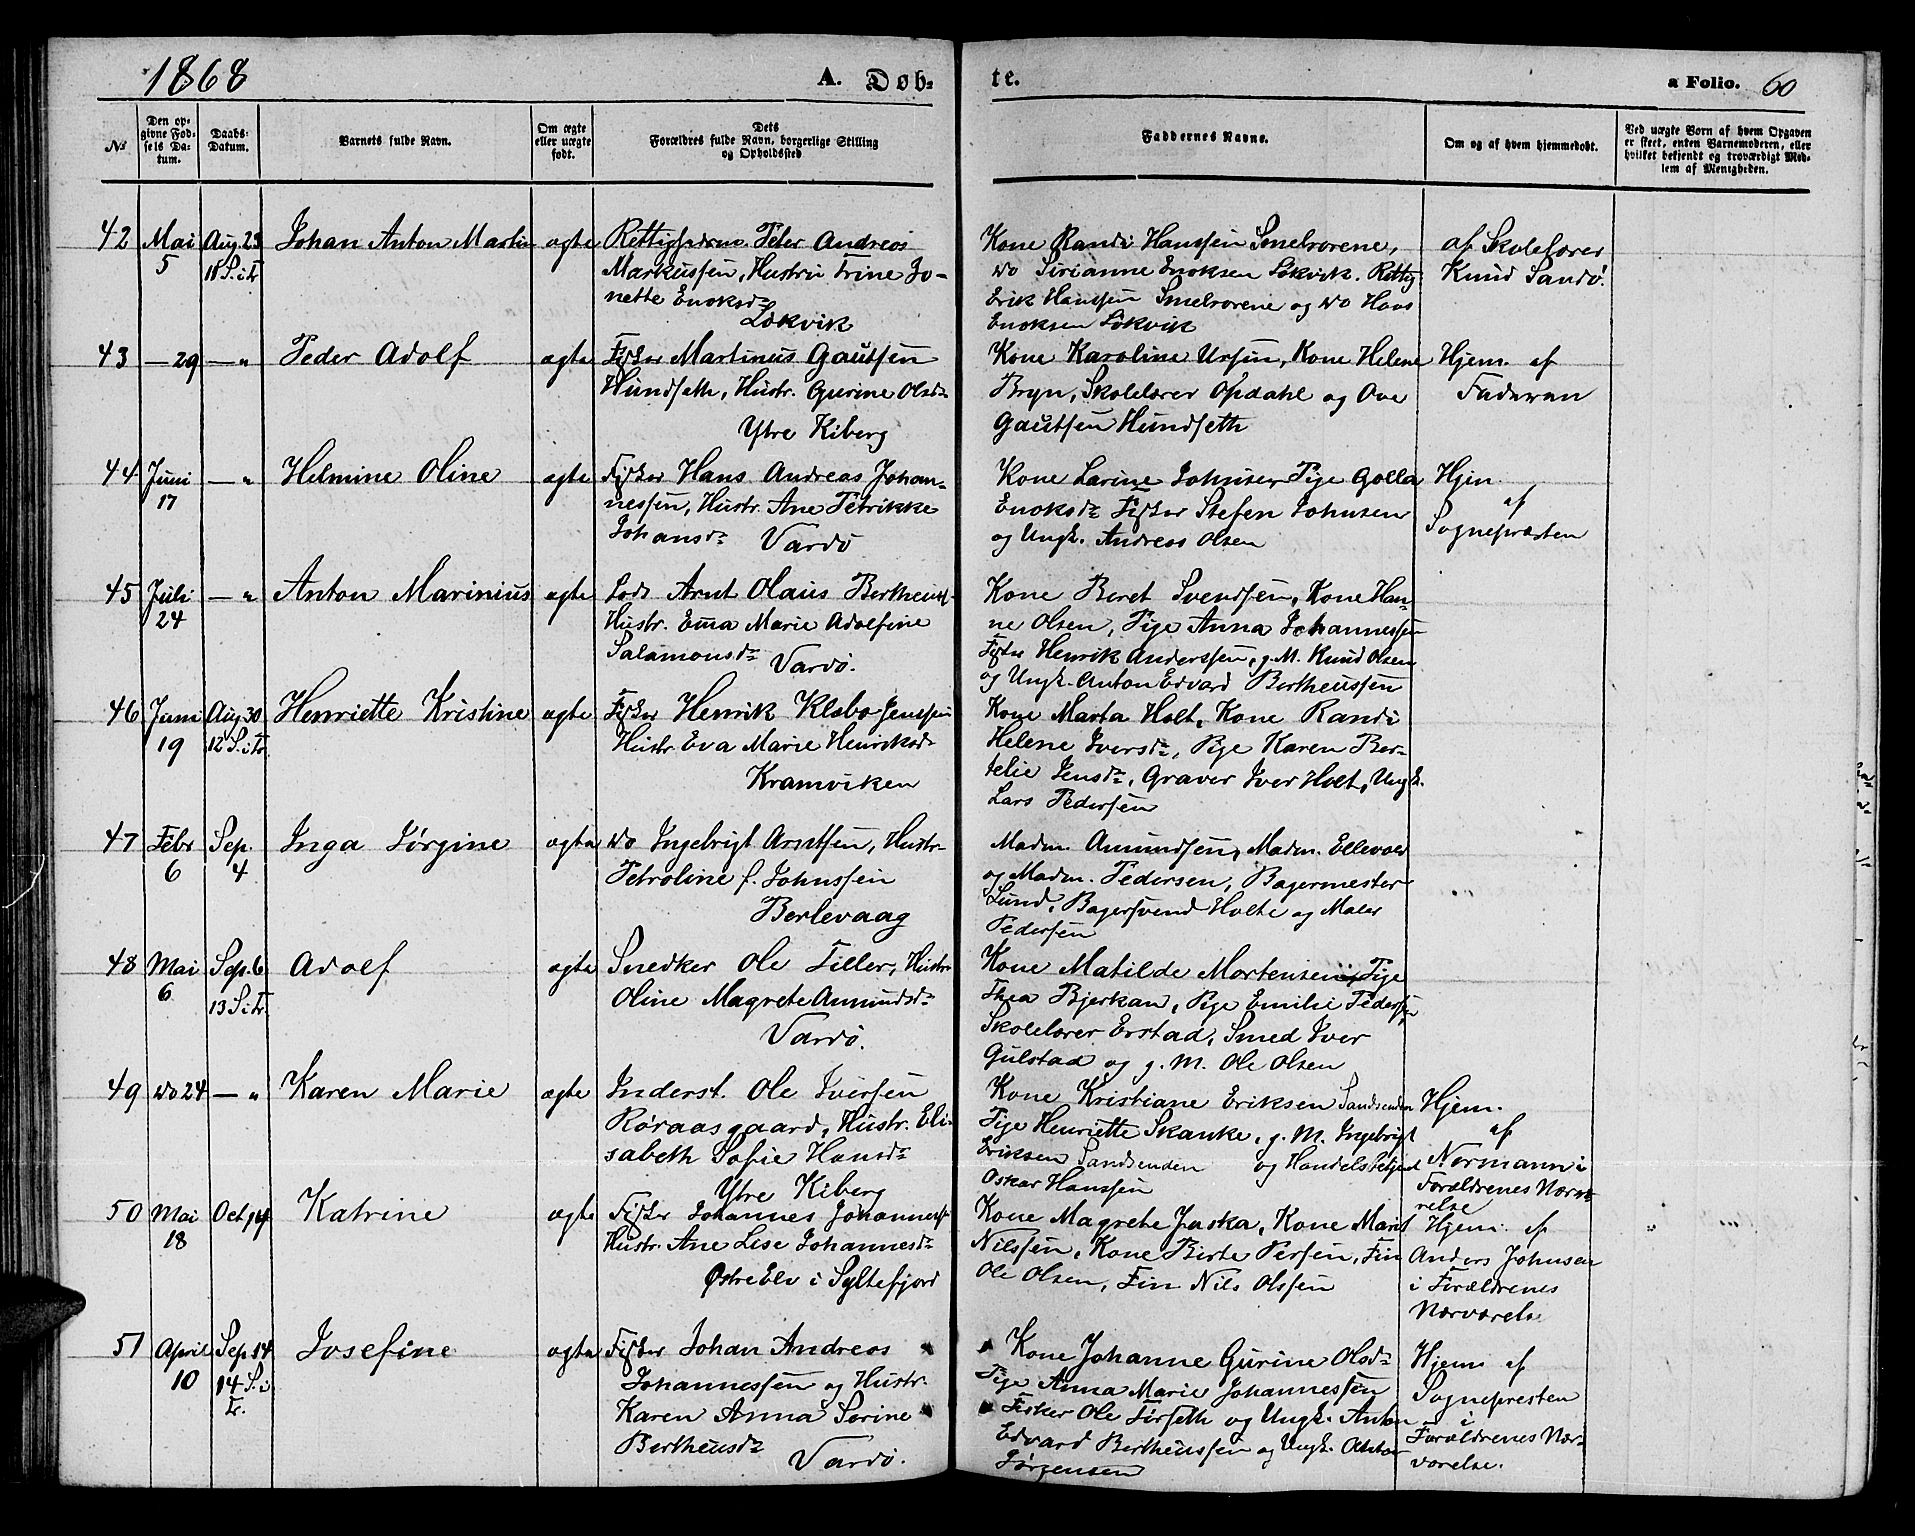 1868
A. Døb-
te.
a Folio. 60
No
Den op-
givne Fød-
sels Da-
tum.
Daabs-
Datum.
Barnets fulde Navn.
Om ægte
eller uægte
født.
Dets
Forældres fulde Navn, borgerlige Stilling
og Opholdssted
Faddernes Navne.
Om og af hvem hjemmedøbt.
Ved uægte Børn af hvem Opgaven
er skeet, enten Barnemoderen, eller
hvilket bekjendt og troværdigt Med-
lem af Menigheden.
42 Mai Aug. 23 Johan Anton Martin ægte
5
Peter Andreas
Markussen, Hustru Trine Jo-
nette Enoksdr
Løkvik
Kone Randi Hanssen Smelrorene,
do Sirianne Enoksen Løkvik. Rettig
Erik Hanssen Smelrorene og do Hans
Enoksen Løkvik
af Skolelærer
Knud Sandø.
43 — 29 — " Peder Adolf ægte
Fisker Martinus Gautsen
Hundseth, Hustr. Gurine Olsdr
Ytre Kiberg
Kone Karoline Ursin, Kone Helene
Bryn, Skolelærer Opdahl og Ove
Gautsen Hundseth
Hjem. af
Faderen
44 Juni — " Helmine Oline ægte
17
Fisker Hans Andreas Johan-
nessen, Hustr. Ane Petrikke
Johansdr Vardø
Kone Larine Johnsen Pige Golla
Enoksdr Fisker Stefen Johnsen
og Ungk. Andreas Olsen
Hjem.
af
Sognepræsten
45 Juli — " Anton Marinius ægte
24
Lods Arnt Olaus Bertheuss.
Hustr. Ema Marie Adolfine
Salamonsdr Vardø.
Kone Beret Svendsen, Kone Han-
ne Olsen, Pige Anna Johannessen
Fisker Henrik Anderssen, g. M. Knud Olsen
og Ungk. Anton Edvard Bertheussen
46 Juni Aug 30 Henriette Kristine ægte
19 12 S. i Tr.
Fisker Henrik Klæbo Jenssen
Hustr. Eva Marie Henriksdr
Kramviken
Kone Marta Holt, Kone Randi
Helene Iversdr, Pige Karen Ber-
telie Jensdr, Graver Iver Holt, Ungk.
Lars Pedersen
47 Febr Sep. Inga Jørgine ægte
6 4
do Ingebrigt Arntsen, Hustr.
Petroline f. Johnssen
Berlevaag
Madm. Amundsen, Madm. Ellevold
og Madm. Pedersen, Bagermester
Lund, Bagersvend Holte og Maler
Pedersen
48 Mai Sep. 6 Adolf ægte
6 13 S. i Tr.
Snedker Ole Tiller, Hustr.
Oline Magrete Amundsdr
Vardø.
Kone Matilde Mortensen, Pige
Thea Bjerkan, Pige Emilie Pedersen
Skolelærer Erstad, Smed Iver
Gulstad og g. M. Ole Olsen
49 do 24 — " Karen Marie ægte
Inderst. Ole Iversen
Røraasgaard, Hustr. Eli-
sabeth Sofie Hansdr
Ytre Kiberg
Kone Kristiane Eriksen Sandsenden
Pige Henriette Skanke, g. M. Ingebrigt
Eriksen Sandsenden og Handelsbetjent
Oskar Hanssen
Hjem.
af
Normann i
Forældrenes Nærvæ-
relse
50 Mai Oct 14 Katrine ægte
18
Fisker Johannes Johanness.
Hustr. Ane Lise Johannesdr
Østre Elv i Syltefjord
Kone Magrete Juska, Kone Marit
Nilssen, Kone Birte Persen, Fin
Ole Olsen, Fin Nils Olssen
Hjem. af
Anders Johnsen
i Forældrenes
Nærværelse
"
51 April Sep 14 Josefine ægte
10 14 S. i
Tr.
Fisker Johan Andreas
Johannessen og Hustr.
Karen Anna Serine
Bertheusdr Vardø.
Kone Johanne Gurine Olsdr
Pige Anna Marie Johannessen
Fisker Ole Forseth og Ungk. Anton
Edvard Bertheussen og Ungk. Anton
Jørgensen
Hjem af
Sognepresten
i
Forældrenes Nær-
værelse.